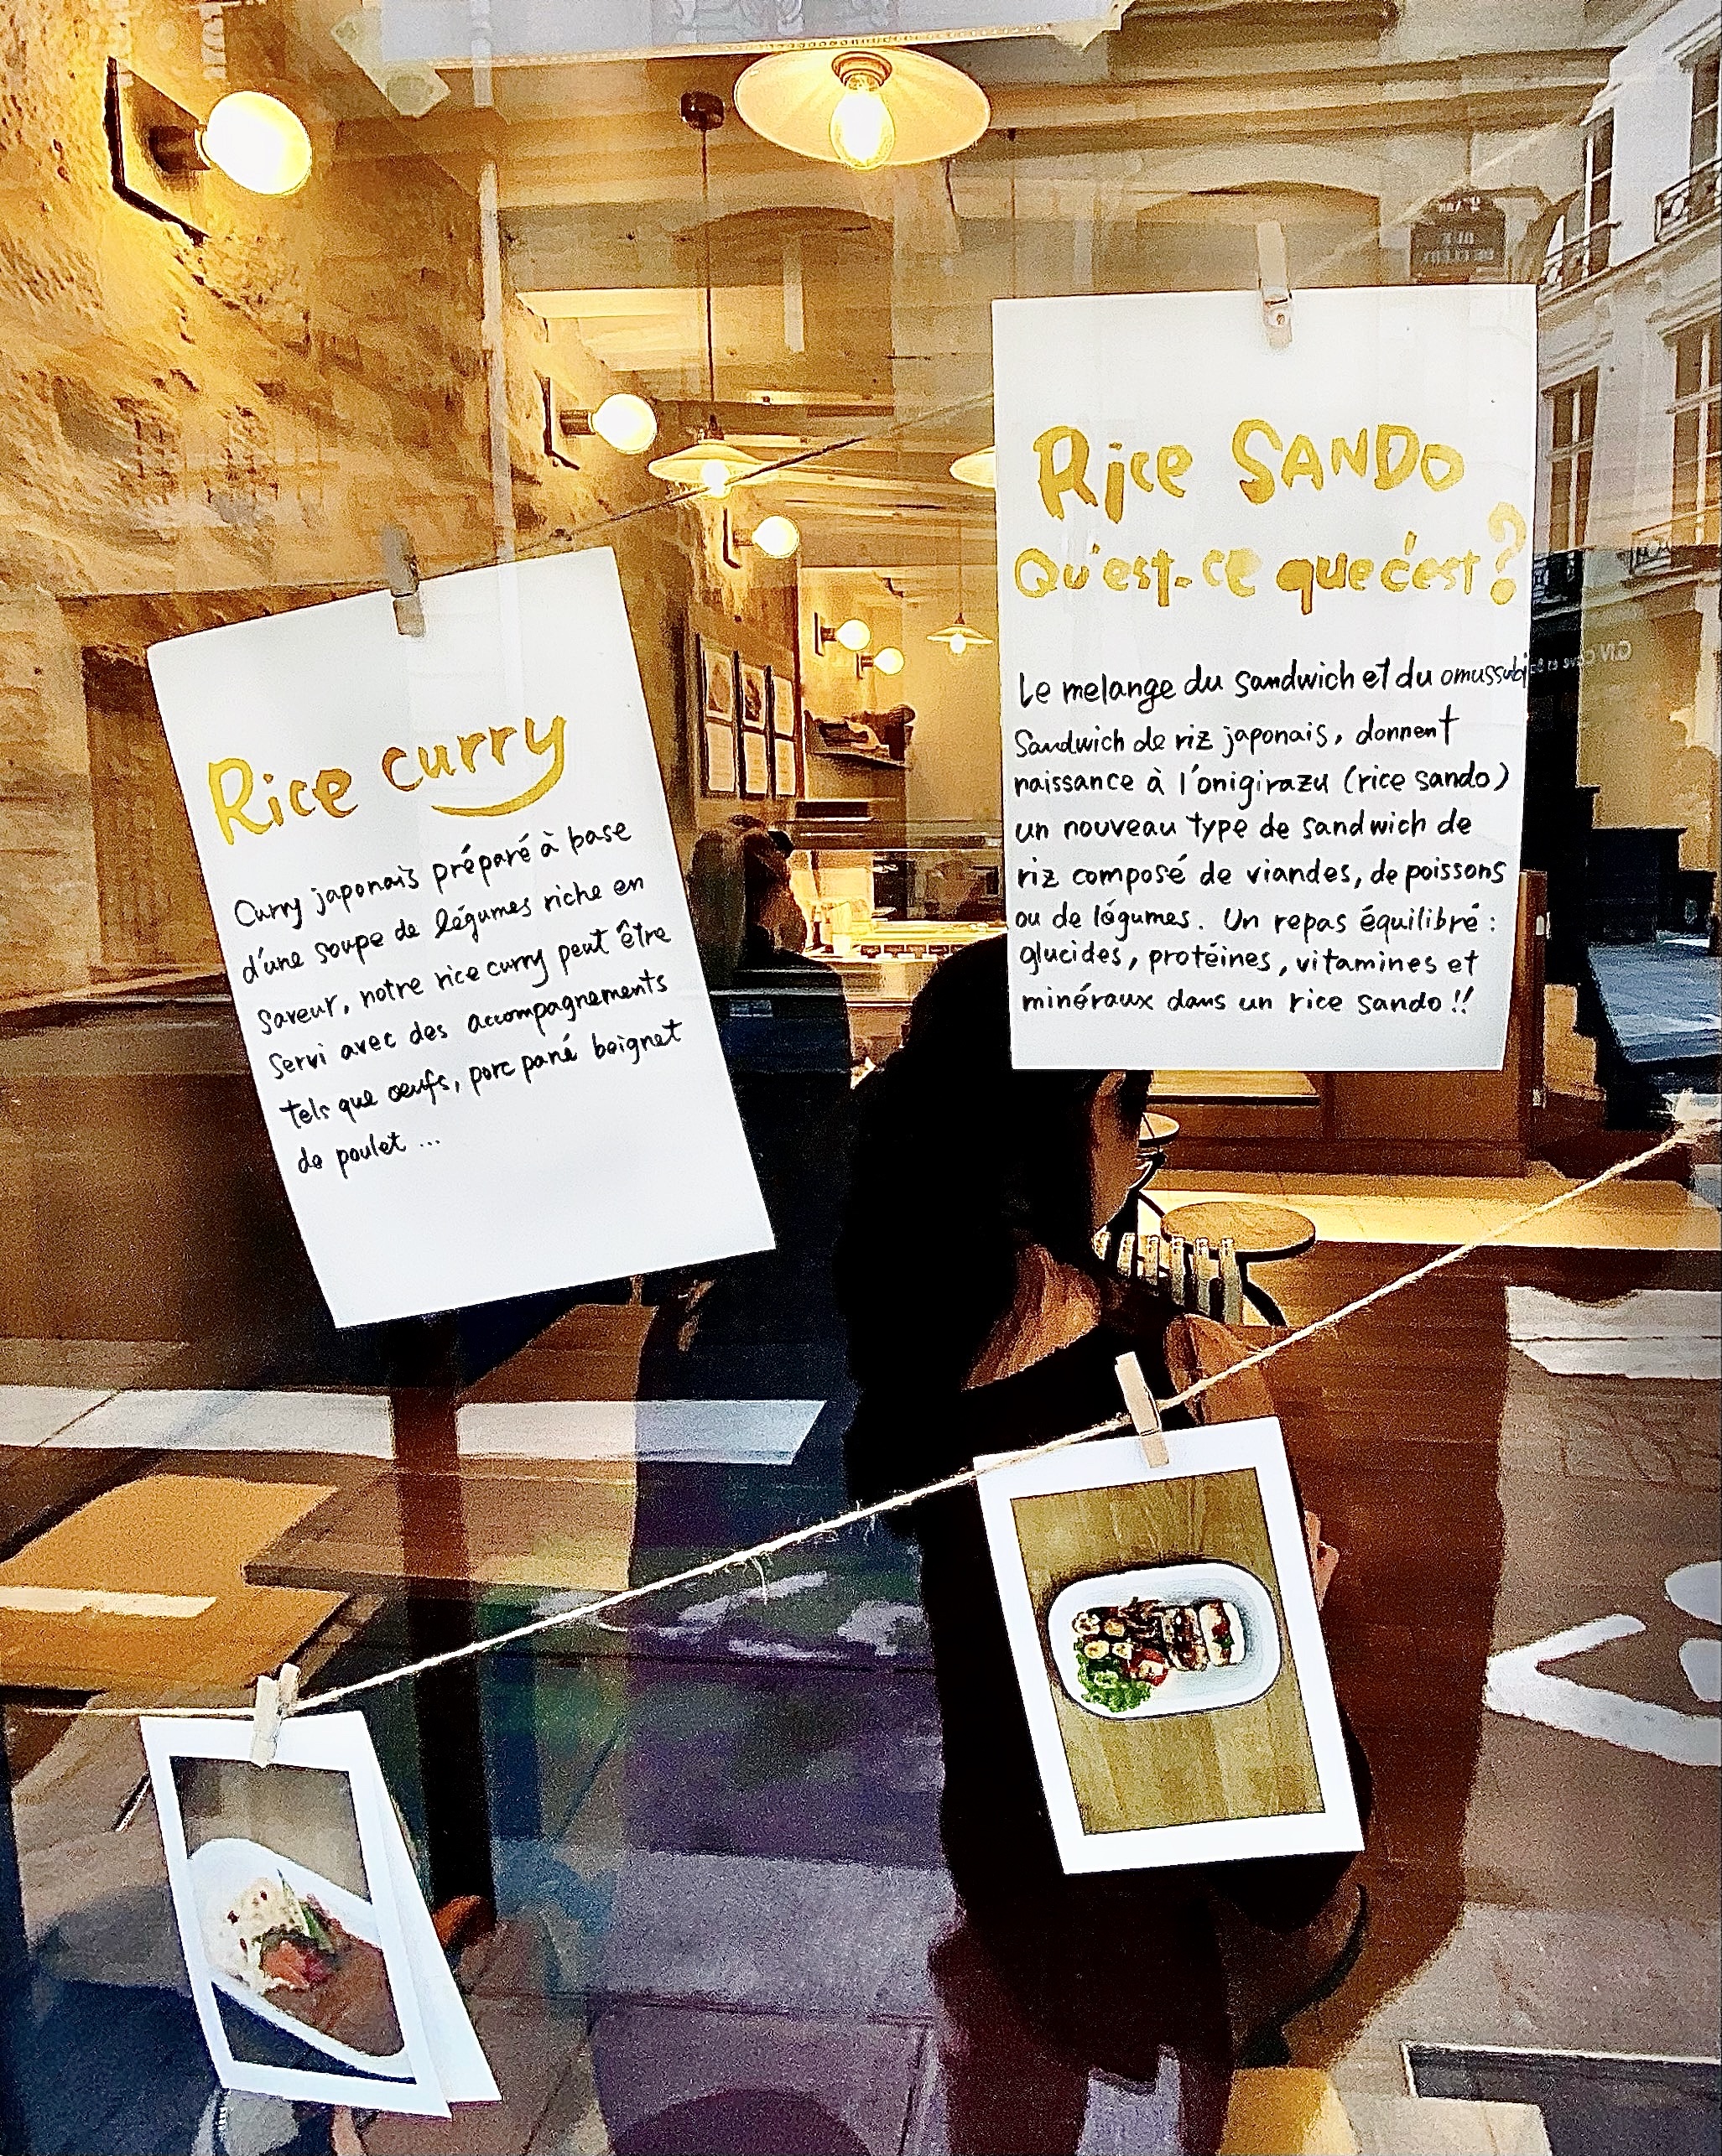 Rice curry
Curry japonais préparé à base
d'une soupe de légumes riche en
saveur, notre rice curry peut être
servi avec des accompagnements
tels que œufs, porc pané beignet
de poulet ...
Rice SANDO
Qu'est-ce que c'est?
Le melange du sandwich et du omussubi
Sandwich de riz japonais, donnent
naissance à l'onigirazu (rice sando)
un nouveau type de sandwich de
riz composé de viandes, de poissons
ou de légumes. Un repas équilibré :
glucides, protéines, vitamines et
minéraux dans un rice sando !!